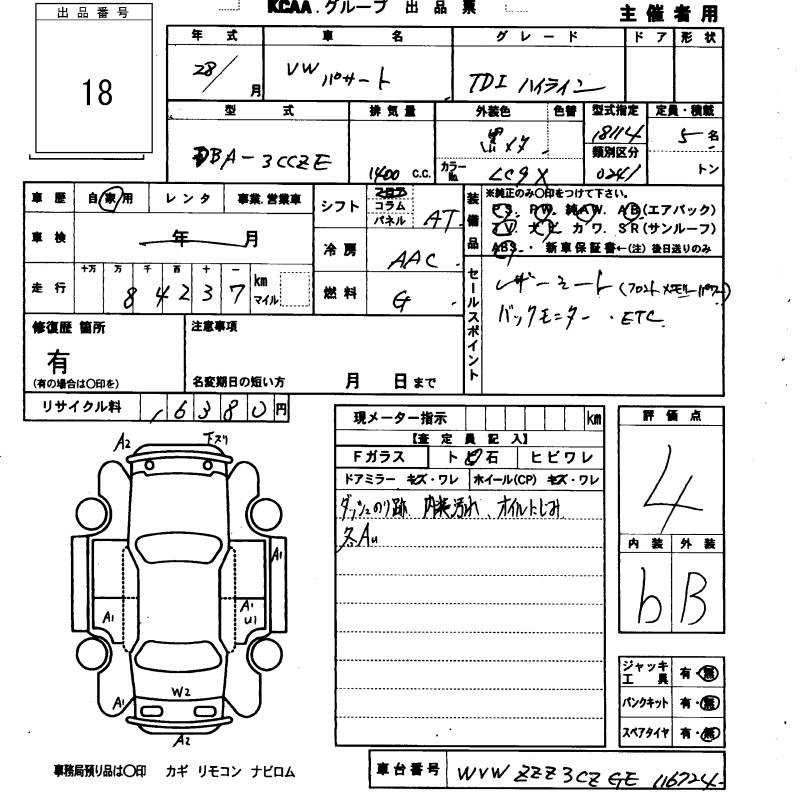 出品番号
18
KCAA.グループ 出品票
主催者用
年式 車名 グレード ドア 形状
28/ 月 VW パサート TDI ハイライン
型式 排気量 外装色 色替 型式指定 定員・積載
DBA-3CCZE 1400 C.C. 黒メタ 18114 5名
カラーNo. LC9X 類別区分 0241 トン
車歴 自家用 レンタ 事業.営業車
シフト フロア コラム パネル AT
車検 年 月
冷房 AAC
走行 十万 万 千 百 十 一 km マイル
84237
燃料 G
装備品 ※純正のみ〇印をつけて下さい。
P S. P W. 純A W. A B(エアバック)
T V. ナビ カワ. S R(サンルーフ)
ABS.・新車保証書←(注)後日送りのみ
セールスポイント
レザーシート (フロントメモリーパワー)
バックモニター・ETC
修復歴 箇所
有
(有の場合は〇印を)
注意事項
名変期日の短い方 月 日まで
リサイクル料 16380円
現メーター指示 km
【査定員記入】
Fガラス ト ビ 石 ヒビワレ
ドアミラー キズ・ワレ ホイール(CP) キズ・ワレ
ダッシュのり跡、内装汚れ、オイルにじみ
各Au
評価点
4
内装 外装
b B
ジャッキ工具 有・無
パンクキット 有・無
スペアタイヤ 有・無
A2 下ズリ
A1
A1
A1 U1
A1 W2 A1
A2
事務局預り品は〇印 カギ リモコン ナビロム
車台番号 WVWZZZ3CZGE116724